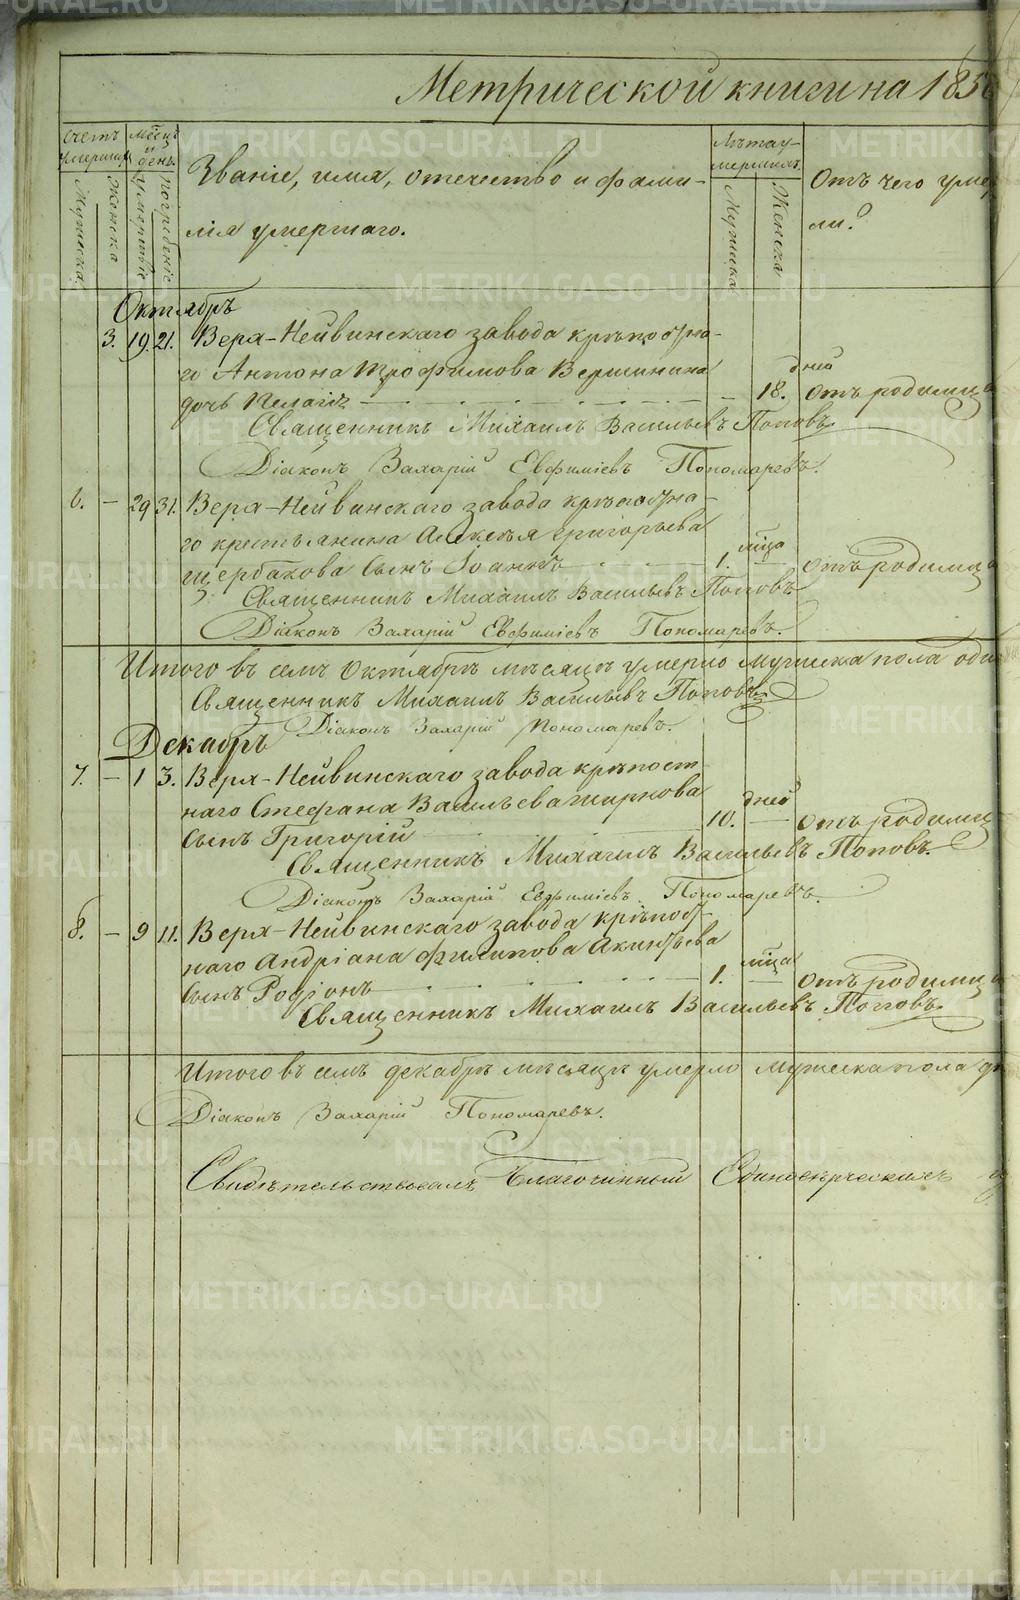 Метрической книги на 185
Счетъ умершихъ
Мужеска
Женска
Мѣсяцъ и день.
умертвіе
погребеніе
Званіе, имя, отечество и фами-
лія умершаго.
Лѣта у-
мершихъ.
Мужеска
Женска
Отъ чего уме
ли?
Октябрь
3. 19. 21. Верх-Нейвинскаго завода крѣпостна-
го Антона Трофимова Вершинина дней
дочь Пелагія — 18. отъ родимца
Священникъ Михаилъ Васильевъ Поповъ.
Діаконъ Захарій Евфиміевъ Пономаревъ.
6. — 29 31. Верх-Нейвинскаго завода крѣпостна-
го крестьянина Алексѣя Григорьева мѣсца
Щербакова сынъ Іоаннъ 1. — отъ родимца
Священникъ Михаилъ Васильевъ Поповъ
Діаконъ Захарій Евфиміевъ Пономаревъ.
Итого въ семъ Октябрѣ мѣсяцѣ умерло мужеска пола оди
Священникъ Михаилъ Васильевъ Поповъ
Діаконъ Захарій Пономаревъ.
Декабрь
7. — 1 3. Верх-Нейвинскаго завода крѣпост-
наго Стефана Васильева Жирнова дней
сынъ Григорій 10. — отъ родимц
Священникъ Михаилъ Васильевъ Поповъ.
Діаконъ Захарій Евфиміевъ Пономаревъ.
8. — 9 11. Верх-Нейвинскаго завода крѣпост-
наго Андріана Филипова Акинѳьева мѣсца
сынъ Родіонъ 1. — отъ родимца
Священникъ Михаилъ Васильевъ Поповъ.
Итого въ семъ декабрѣ мѣсяцѣ умерло мужеска пола д
Діаконъ Захарій Пономаревъ.
Свидѣтельствовалъ Благочинный Единовѣрческихъ ц
METRIKI.GASO-URAL.RU